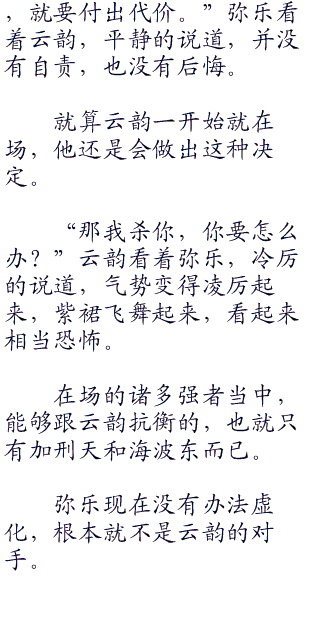 ，就要付出代价。”弥乐看
着云韵，平静的说道，并没
有自责，也没有后悔。
就算云韵一开始就在
场，他还是会做出这种决
定。
“那我杀你，你要怎么
办？”云韵看着弥乐，冷厉
的说道，气势变得凌厉起
来，紫裙飞舞起来，看起来
相当恐怖。
在场的诸多强者当中，
能够跟云韵抗衡的，也就只
有加刑天和海波东而已。
弥乐现在没有办法虚
化，根本就不是云韵的对
手。